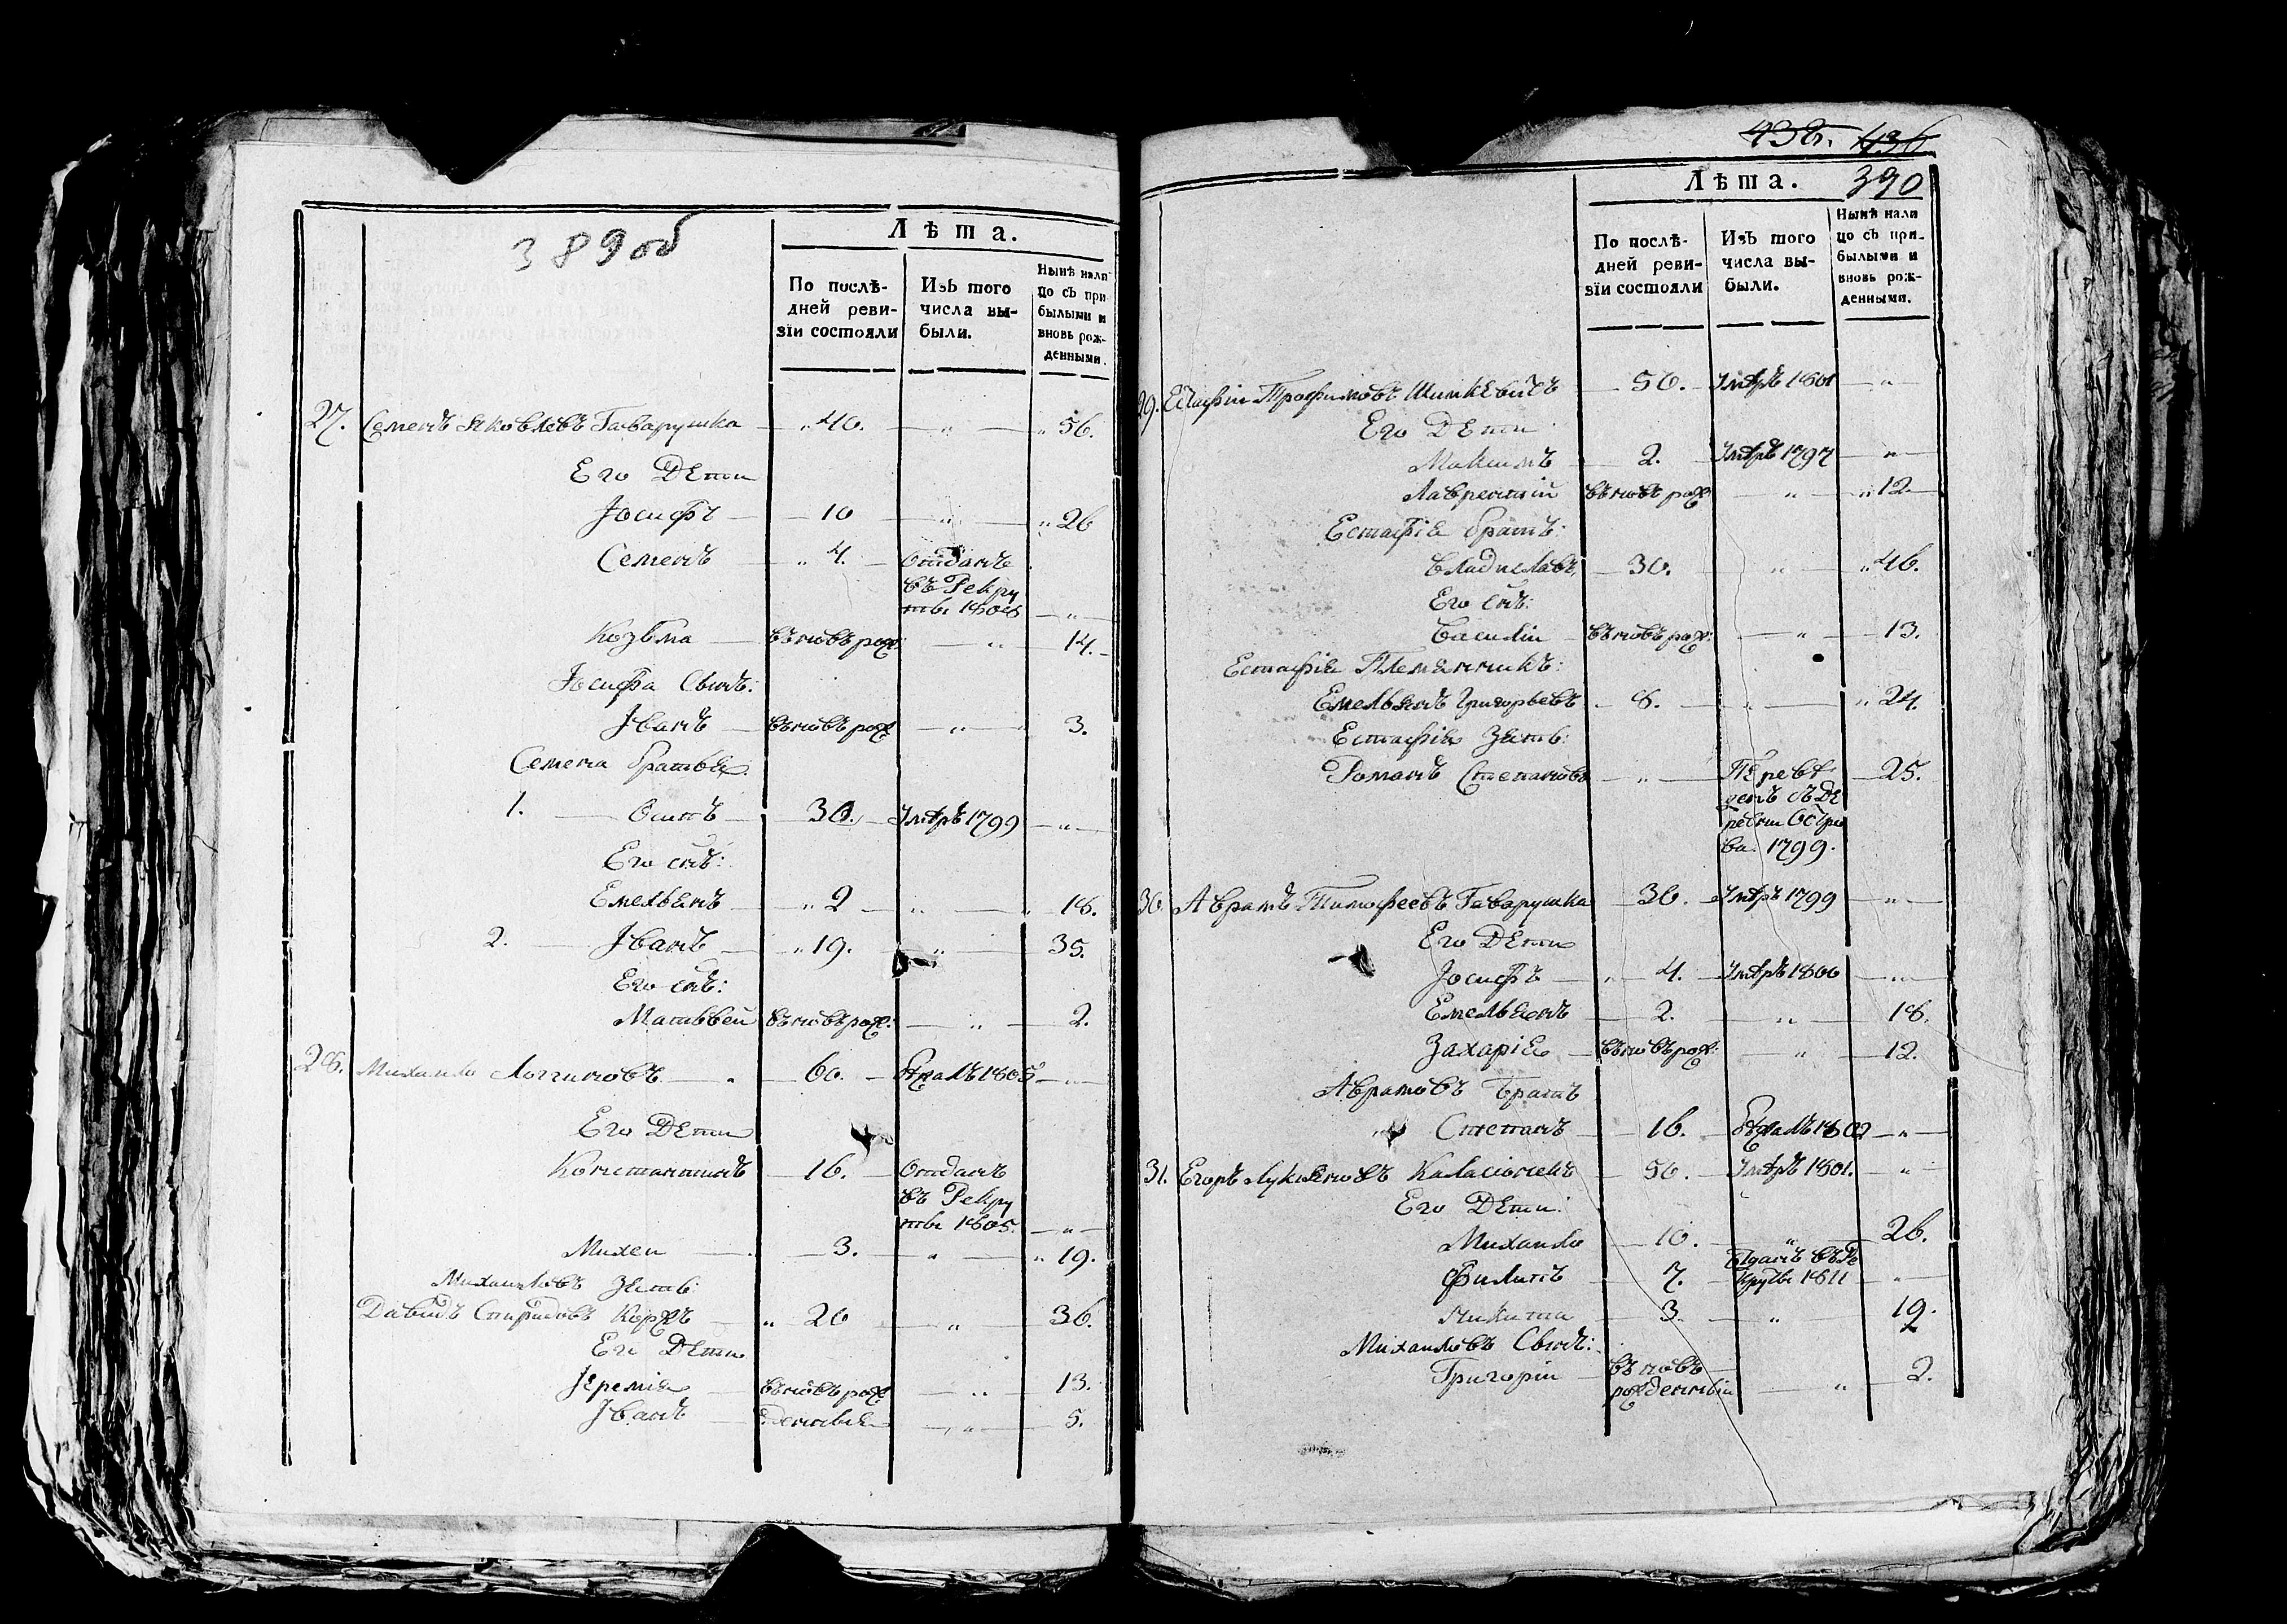 389об
Лѣта.
По послѣ-
дней реви-
зїи состояли
Изъ того
числа вы-
были.
Нынѣ нали
цо съ при
былыми и
вновь рож-
денными.
27. Семенъ Яковлевъ Гаварушка — „40. — „ — „56.
Его Дети
Іосифъ — 10 — „ — „26
Семенъ — „4. — Отданъ
въ Рекру
ты 1808 — „
Козьма — вновь рож: — „ — 14.
Іосифа Сынъ:
Іванъ — вновь рож — „ — 3.
Семена братья:
1. — Осипъ — 30. — Умръ 1799 — „
Его снъ:
Емельянъ — „2 — „ — 18.
2. — Іванъ — „19. — „ — 35.
Его снъ:
Матьвей вновь рож: — „ — 2.
28. Михайло Логгиновъ — 60. — Бежалъ 1805 — „
Его Дети
Константинъ — 16. — Отданъ
въ Рекру
ты 1805. — „
Михеи — 3. — „ — „19.
Михайловъ Зять
Давыдъ Спиридовъ Коржъ — „20 — „ — 36.
Его Дети
Іеремія — вновь рож — „ — 13.
Іванъ — денныя — „ — 5.
435. 436
390
Лѣта.
По послѣ-
дней реви-
зїи состояли
Изъ того
числа вы-
были.
Нынѣ нали
цо съ при-
былыми и
вновь рож-
денными.
29. Естафіи Трофимовъ Шинкевичъ — 56. — Умръ 1801 — „
Его Дети
Максимъ — 2. — Умръ 1797 — „
Лаврентій вновь рож — „ — „12.
Естафія братъ:
Владиславъ, — 30. — „ — „46.
Его снъ:
Василіи — вновь рож: — „ — 13.
Естафія Племянникъ:
Емельянъ Григорьевъ — 8. — „ — „24.
Естафія Зять:
Романъ Степановъ — „ — Переве — 25.
денъ съ Де
ревни Остро
ва. 1799.
30. Аврамъ Тимофеевъ Гаварушка — 30. — Умръ 1799 — „
Его Дети
Іосифъ — „ 4. — Умръ 1800 — „
Емельянъ — 2. — „ — 18.
Захарія — вновь рож: — „ — 12.
Аврамовъ братъ
„ Степанъ — 16. — Бежалъ 1802 — „
31. Егоръ Лукьяновъ — 50. — Умръ 1801. — „
Его Дети:
Михайло — 10. — „ — 26.
Филипъ — 7. — Отданъ въ Ре
круты 1811 — „
Никита — 3. — „ — 19.
Михайловъ Сынъ:
Григоріи — вновь
рожденныи — „ — 2.